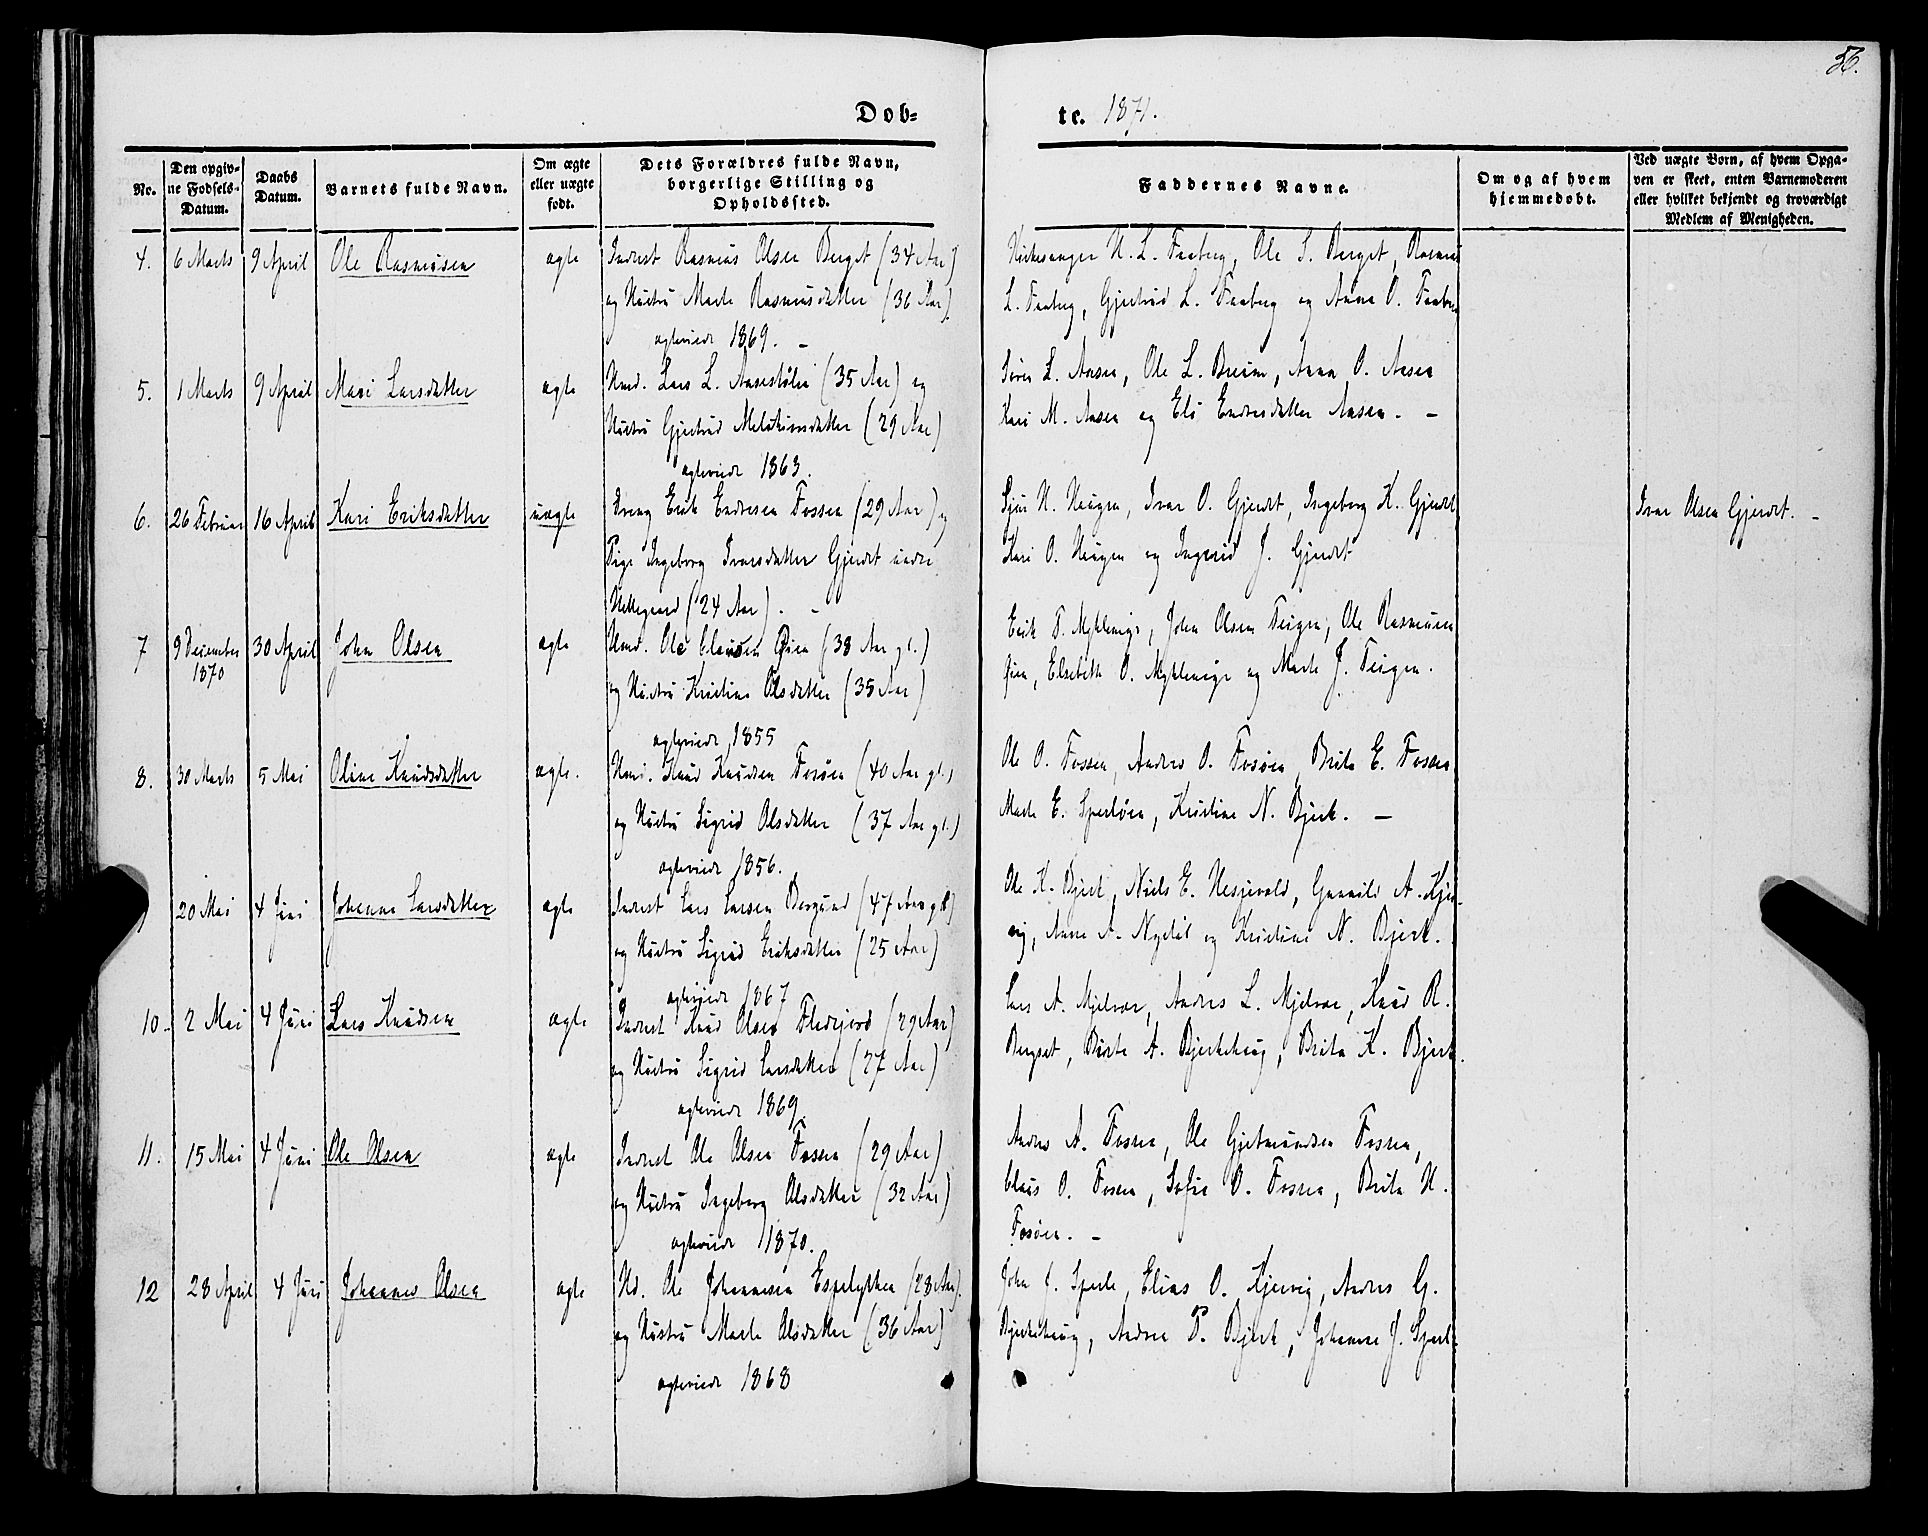 56.
Døb-
te. 1871.
No.
Den opgiv-
ne Fødsels-
Datum.
Daabs
Datum.
Barnets fulde Navn.
Om ægte
eller uægte
født.
Dets Forældres fulde Navn,
borgerlige Stilling og
Opholdssted.
Faddernes Navne.
Om og af hvem
hjemmedøbt.
Ved uægte Børn, af hvem Opga-
ven er skeet, enten Barnemoderen
eller hvilket bekjendt og troværdigt
Medlem af Menigheden.
4. 6 Marts 9 April Ole Rasmusen ægte Inderst Rasmus Olsen Berget (34 Aar)
og Hustru Marte Rasmusdatter (36 Aar)
ægteviede 1869. -
Kirkesanger H. L. Faaberg, Ole S. Berget, Rasmus
L. Faaberg, Gjertrud L. Faaberg og Anna O. Faaberg
5. 1 Marts 9 April Mari Larsdatter ægte Hmd. Lars L. Aasestølen (35 Aar) og
Hustru Gjertrud Melkiorsdatter (29 Aar)
ægteviede 1863.
Søren L. Aasen, Ole L. Breum, Anna O. Aasen
Kari M. Aasen og Eli Endresdatter Aasen. -
6. 26 Februar 16 April Kari Eriksdatter uægte Dreng Erik Endresen Fossen (29 Aar) og
Pige Ingeborg Ivarsdatter Gjerdet
(24 Aar). -
Sjur H. Haugen, Ivar O. Gjerdet, Ingeborg K. Gjerdet
Kari O. Haugen og Ingerid J. Gjerdet
Ivar Olsen Gjerdet. -
7 9 December 30 April John Olsen ægte Hmd. Ole Clausen Øien (38 Aar gl.)
1870
og Hustru Kristine Olsdatter (35 Aar)
ægteviede 1855
Erik T. Myklemyr, John Olsen Teigen, Ole Rasmusen
Øien, Elsebeth O. Myklemyr og Marte J. Teigen.
8. 30 Marts 5 Mai Oline Knudsdatter ægte. Hmd. Knud Knudsen Fosøen (40 Aar gl.)
og Hustru Sigrid Olsdatter (37 Aar gl.)
ægteviede 1856.
Ole O. Fossen, Andres O. Fosøen, Brita E. Fossen
Marte E. Sperleøen, Kristine N. Bjerk. -
20 Mai 4 Juni Johanne Larsdatter ægte Inderst Lars Larsen Berqund (47 Aar gl.)
og Hustru Sigrid Eriksdatter (25 Aar)
ægteviede 1867
Ole K. Bjerk, Niels E. Hesjevold, Gunnild A. Kjer-
vig, Anne A. Nystøl og Kristine N. Bjerk.
10. 2 Mai 4 Juni Lars Knudsen ægte Inderst Knud Olsen Fledejord (29 Aar)
og Hustru Sigrid Larsdatter (27 Aar)
ægteviede 1869.
Lars A. Mjelvær, Andres L. Mjelvær, Knud R.
Bergset, Birte A. Bjerkehaug, Brita K. Bjerk.
11. 15 Mai 4 Juni Ole Olsen ægte Inderst Ole Olsen Fossen (29 Aar)
og Hustru Ingeborg Olsdatter (32 Aar)
ægteviede 1870.
Andres A. Fossen, Ole Gjetmundsen Fossen,
Claus O. Fossen, Sofie O. Fossen, Brita K.
Fosøen. -
12 28 April 4 Juni Johannes Olsen ægte Hd. Ole Johannesen Espelykken (28 Aar).
og Hustru Marte Olsdatter (36 Aar)
ægteviede 1868
John J. Sperle, Elias O. Kjervig, Andres G.
Bjerkehaug, Andrea P. Bjerk, Johanne J. Sperle.